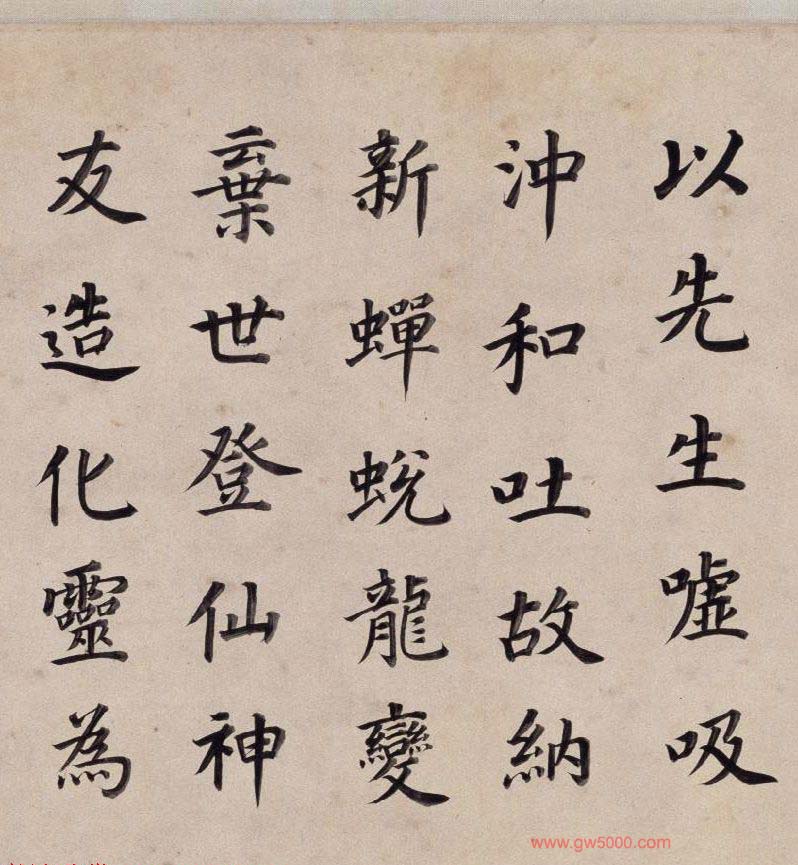 以先生噓吸
沖和吐故納
新蟬蛻龍變
棄世登仙神
友造化靈為
www.gw5000.com